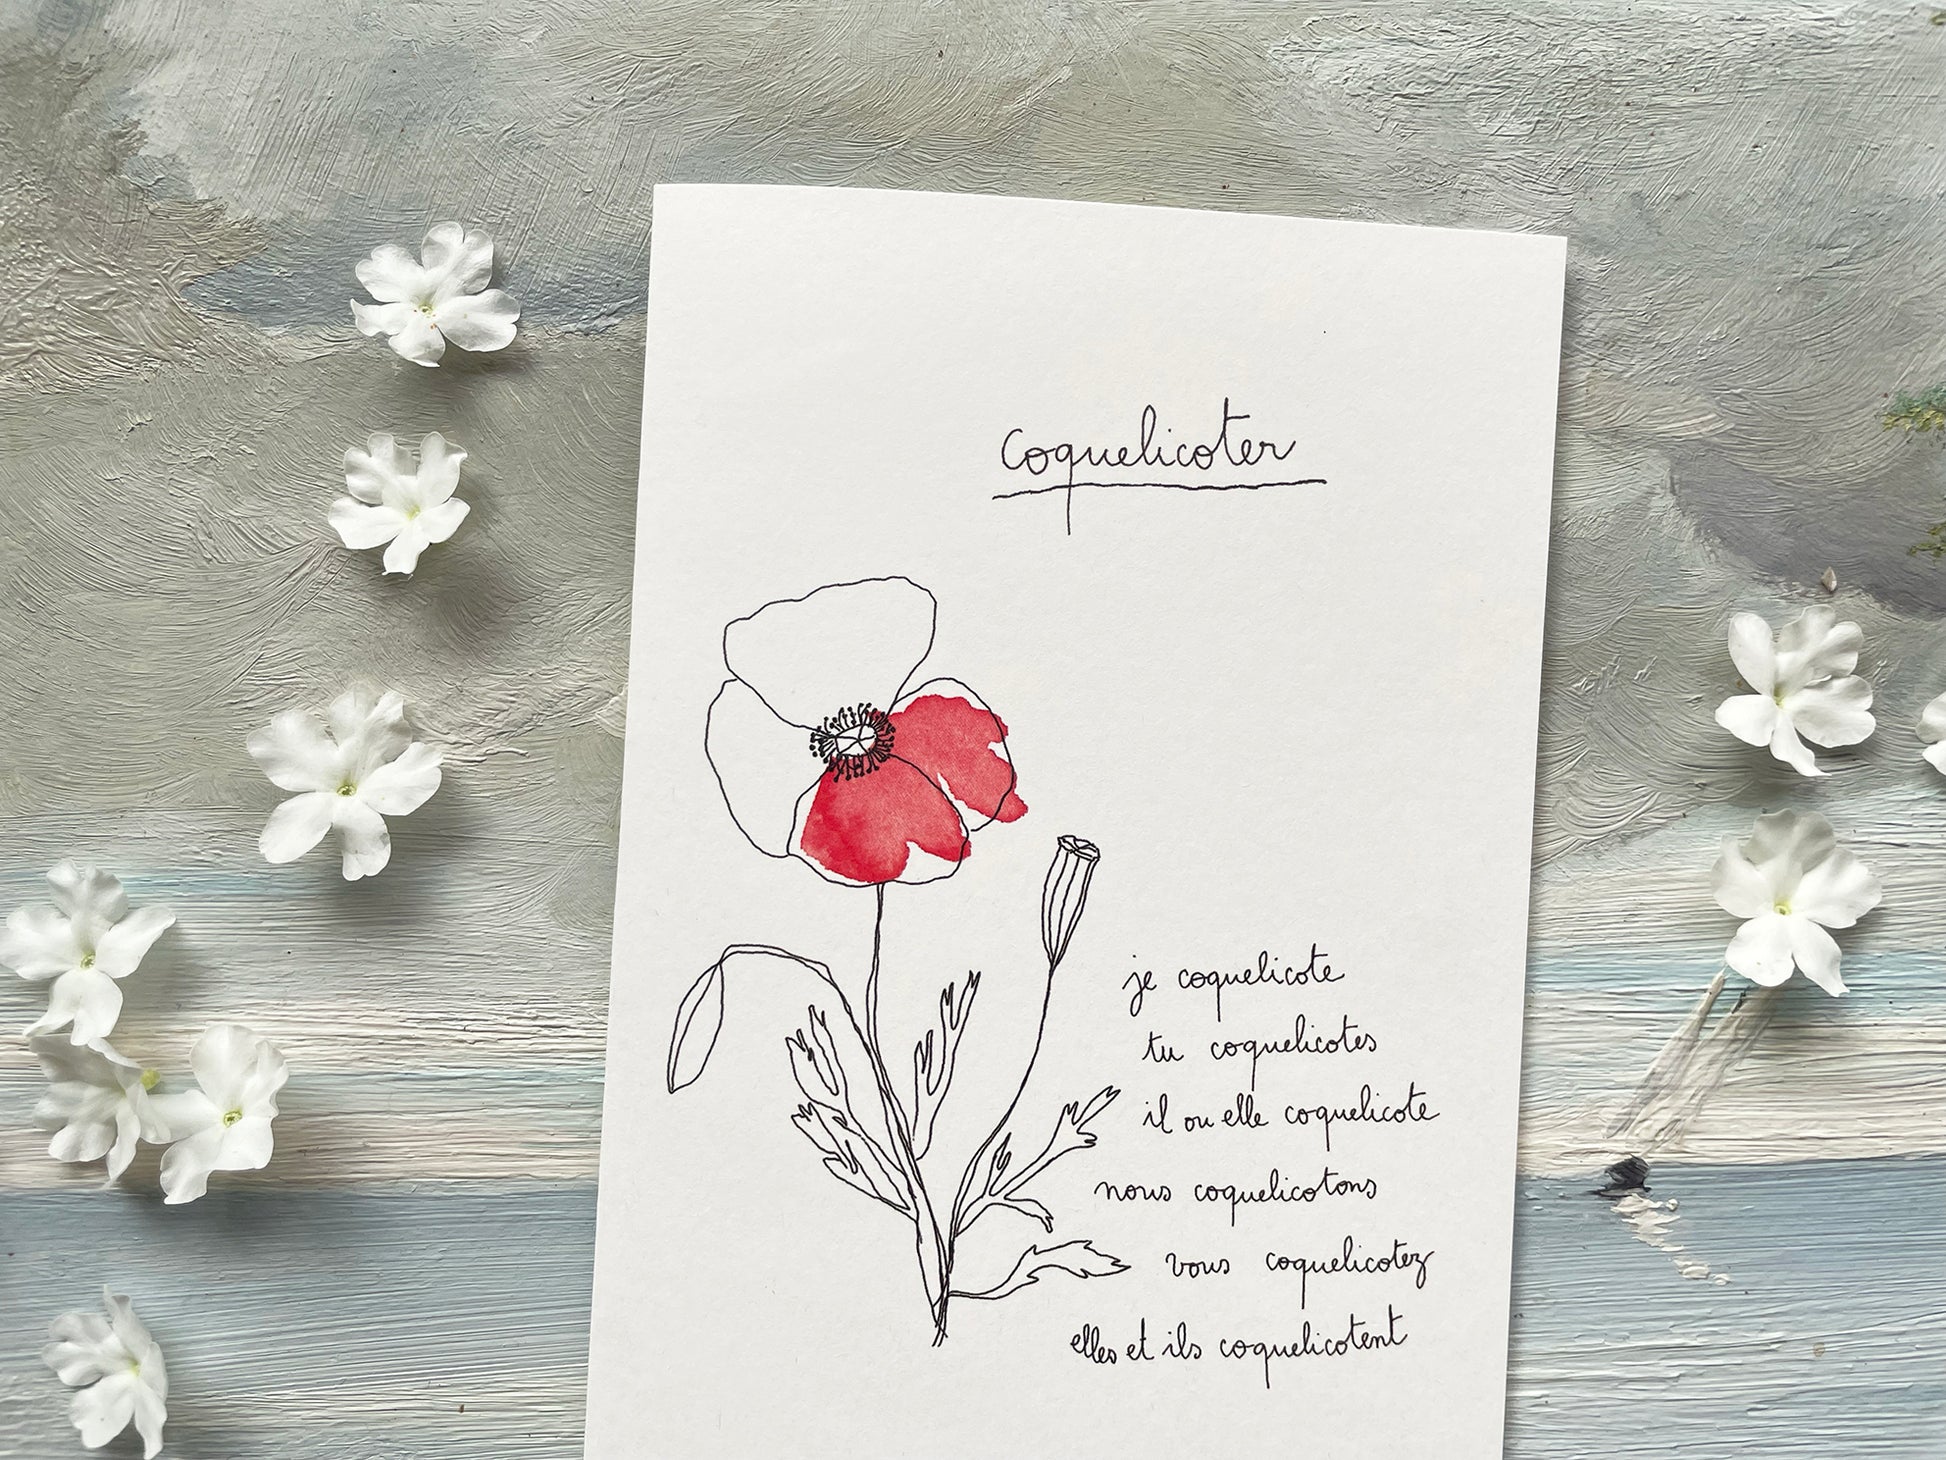 coquelicoter
je coquelicote
tu coquelicotes
il ou elle coquelicote
nous coquelicotons
vous coquelicotez
elles et ils coquelicotent